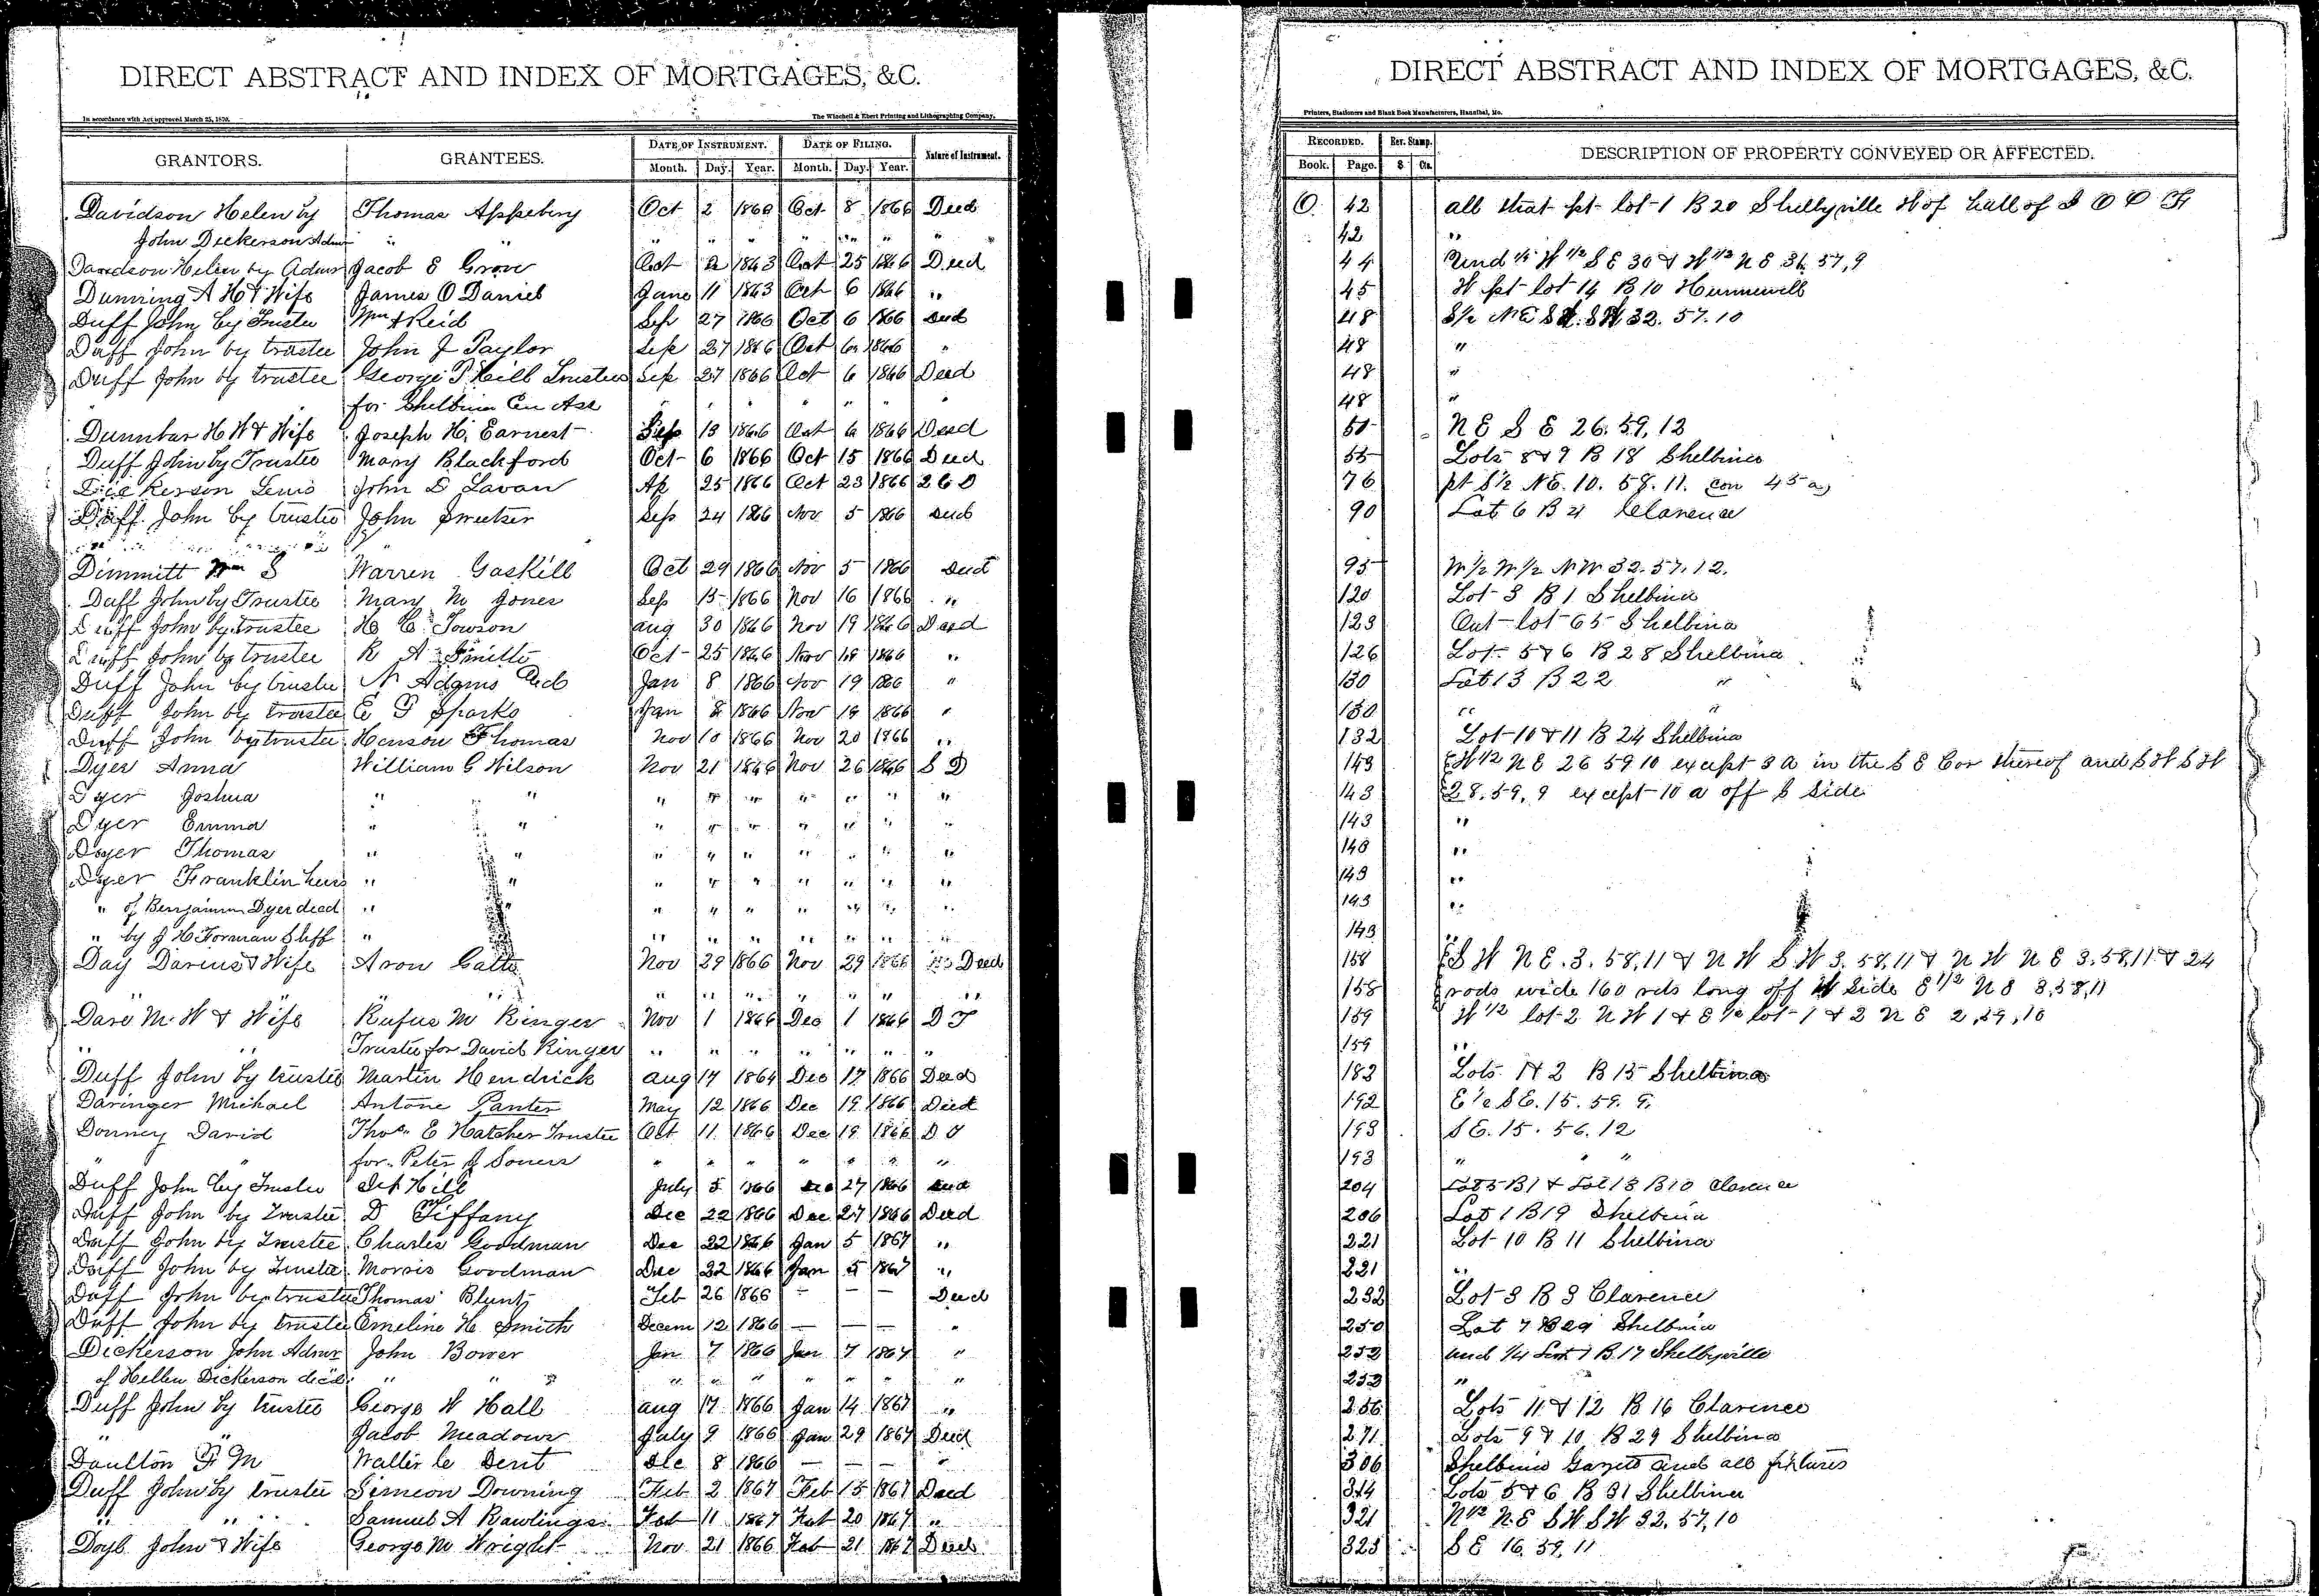 DIRECT ABSTRACT AND INDEX OF MORTGAGES, &C.
In accordance with Act approved March 25, 1870. The Winchell & Ebert Printing and Lithographing Company,
GRANTORS. GRANTEES. DATE OF INSTRUMENT. DATE OF FILING. Nature of Instrument.
Month. Day. Year. Month. Day. Year.
Davidson Helen by Thomas Appebery Oct 2 1860 Oct 8 1866 Deed
John Dickerson Admr " " " " " " " " "
Davidson Helen by Admr Jacob E Grove Oct 2 1863 Oct 25 1866 Deed
Dunning A H & Wife James O Daniel June 11 1863 Oct 6 1866 "
Duff John by Trustee Wm A Reid Sep 27 1866 Oct 6 1866 Deed
Duff John by trustee John J Taylor Sep 27 1866 Oct 6 1866 "
Duff John by trustee George P Hill Trustees Sep 27 1866 Oct 6 1866 Deed
for Shelbina Cen Ass " " " " " " "
Dunnbar H W & Wife Joseph H. Earnest Sep 13 1866 Oct 6 1866 Deed
Duff John by Trustee Mary Blackford Oct 6 1866 Oct 15 1866 Deed
Dickerson Lewis John D Lavan Ap 25 1866 Oct 23 1866 2 C D
Duff John by trustee John Sweetser Sep 24 1866 Nov 5 1866 Deed
Dimmitt Wm S Warren Gaskill Oct 29 1866 Nov 5 1866 Deed
Duff John by Trustee Mary M Jones Sep 15 1866 Nov 16 1866 "
Duff John by trustee H C Towson Aug 30 1866 Nov 19 1866 Deed
Duff John by trustee R A Smith Oct 25 1866 Nov 19 1866 "
Duff John by trustee N Adams Jan 8 1866 Nov 19 1866 "
Duff John by trustee E P Sparks Jan 8 1866 Nov 19 1866 "
Duff John by trustee Henson Thomas Nov 10 1866 Nov 20 1866 "
Dyer Anna William G Wilson Nov 21 1866 Nov 26 1866 S D
Dyer Joshua " " " " " " " " "
Dyer Emma " " " " " " " " "
Dyer Thomas " " " " " " " " "
Dyer Franklin heirs " " " " " " " " "
" of Benjamin Dyer decd " " " " " " " "
" by J H Forman Shff " " " " " " " "
Day Darius & Wife Aron Catts Nov 29 1866 Nov 29 1866 Deed
" " " " " " " " "
Dare M. W & Wife Rufus M Ringer Nov 1 1866 Dec 1 1866 D T
" " Trustee for David Ringer " " " " " " "
Duff John by trustee Martin Hendrick Aug 17 1864 Dec 17 1866 Deed
Daringer Michael Antone Panter May 12 1866 Dec 19 1866 Deed
Donney David Thos. E Hatcher Trustee Oct 11 1866 Dec 19 1866 D T
" " for Peter J Souers " " " " " " "
Duff John by Trustee Hill July 5 1866 Dec 27 1866 Deed
Duff John by Trustee D Tiffany Dec 22 1866 Dec 27 1866 Deed
Duff John by Trustee Charles Goodman Dec 22 1866 Jan 5 1867 "
Duff John by Trustee Morris Goodman Dec 22 1866 Jan 5 1867 "
Duff John by trustee Thomas Blunt Feb 26 1866 — — — Deed
Duff John by trustee Emeline H Smith Decem 12 1866 — — — "
Dickerson John Admr John Bower Jan 7 1866 Jan 7 1867 "
of Hellen Dickerson decd " " " " " " " " "
Duff John by trustee George W Hall Aug 17 1866 Jan 14 1867 "
" " Jacob Meadows July 9 1866 Jan 29 1867 Deed
Daulton F M Walter C Dent Dec 8 1866 — — — "
Duff John by trustee Simeon Downing Feb 2 1867 Feb 15 1867 Deed
" " Samuel A Rawlings Feb 11 1867 Feb 20 1867 "
Doyl John & Wife George M Wright Nov 21 1866 Feb 21 1867 Deed
DIRECT ABSTRACT AND INDEX OF MORTGAGES, &C.
Printers, Stationers and Blank Book Manufacturers, Hannibal, Mo.
RECORDED. Rev. Stamp. DESCRIPTION OF PROPERTY CONVEYED OR AFFECTED.
Book. Page. $ Cts.
O. 42 all that pt lot 1 B 20 Shelbyville W of hall of I O O F
42 "
44 Und 1/5 W 1/2 S E 30 & W 1/2 N E 31, 57, 9
45 W pt lot 14 B 10 Hunnewell
48 S 1/2 NE SW. SW 32. 57. 10
48 "
48 "
48 "
51 N E S E 26. 59, 12
55 Lots 8 & 9 B 18 Shelbina
76 pt S 1/2 NE. 10. 58. 11. con 45 a
90 Lot 6 B 4 Clarence
95 W 1/2 W 1/2 NW 32. 57. 12.
120 Lot 3 B 1 Shelbina
123 Out lot 65 Shelbina
126 Lots 5 & 6 B 28 Shelbina
130 Lot 13 B 22 "
130 " "
132 Lot 10 & 11 B 24 Shelbina
143 W 1/2 N E 26 59 10 except 3 a in the S E Cor thereof and S W S W
143 28. 59, 9 except 10 a off S side
143 "
143 "
143 "
143 "
143 "
158 S W N E. 3. 58, 11 & N W S W 3. 58, 11 & N W N E 3. 58, 11 & 24
158 rods wide 160 rds long off W side E 1/2 N E 3, 58, 11
159 W 1/2 lot 2 N W 1 & E 1/2 lot 1 & 2 N E 2, 59, 10
159 "
182 Lots 1 & 2 B 15 Shelbina
192 E 1/2 SE. 15. 59. 9.
193 S E. 15. 56. 12
193 " " "
204 Lot 5 B 1 & Lot 13 B 10 Clarence
206 Lot 1 B 19 Shelbina
221 Lot 10 B 11 Shelbina
221 "
232 Lot 3 B 3 Clarence
250 Lot 7 B 29 Shelbina
252 und 1/4 Lot 1 B. 17 Shelbyville
252 "
256 Lots 11 & 12 B 16 Clarence
271 Lots 9 & 10 B 29 Shelbina
306 Shelbina Gazette and all fixtures
314 Lots 5 & 6 B 31 Shelbina
321 N 1/2 N E S W S W 32. 57, 10
323 S E 16. 59, 11